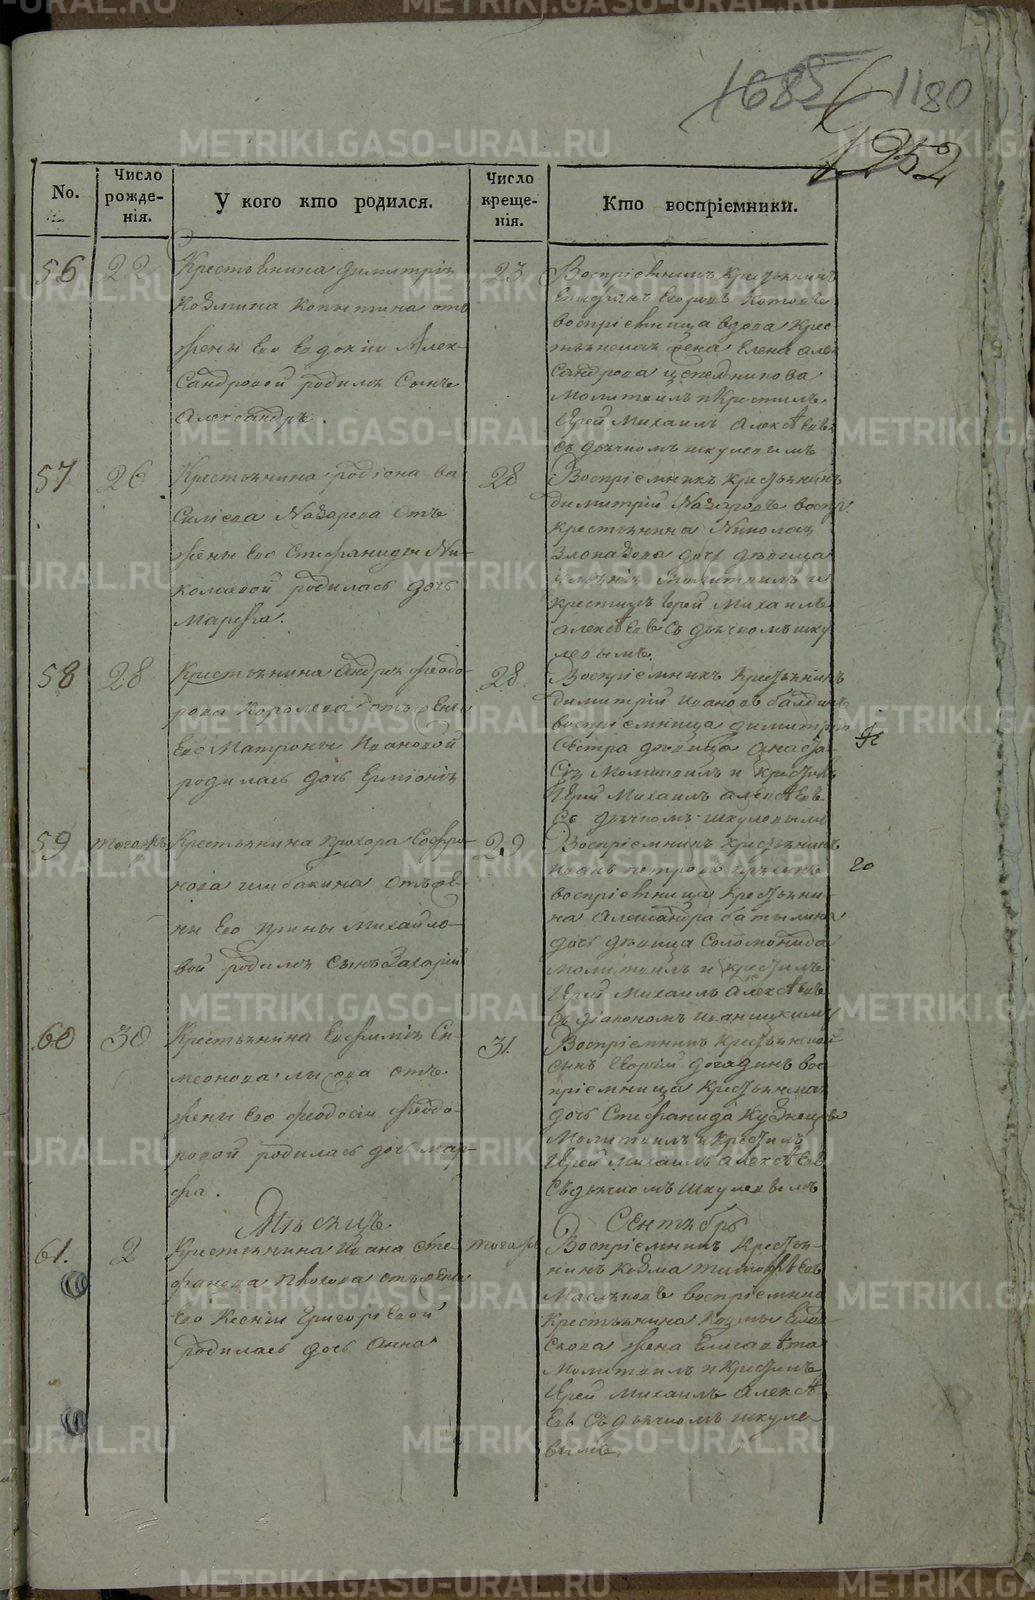 1685 1180
1252
No. Число рожденія. У кого кто родился. Число крещенія. Кто воспріемники.
56 22 Крестьянина Димитрія 23
Козмина Копытина отъ
жены Его Евдокіи Алек-
сандровой родился сынъ
Александръ.
Воспріемникъ Крестьянинъ
Епифанъ Егоровъ
воспріемница вдова Крес-
жена Елена Але-
сандрова
Молитвилъ и Крестилъ
Іерей Михаилъ Алексѣевъ
съ дьячкомъ Шкулевымъ
57 26 Крестьянина Родіона Ва- 28
силіева Назарова отъ
жены Его Стефаниды Ни-
колаевой родилась дочь
Марфа.
Воспріемникъ Крестьянинъ
Димитрій Назаровъ воспр.
Крестьянина Николая
дочь дѣвица
молитвилъ и
крестилъ Іерей Михаилъ
Алексѣевъ съ дьячкомъ Шку
левымъ.
58 28 Крестьянина Андрея Феодо- 28
рова Королева отъ жены
Его Матроны Ивановой
родилась дочь Ермionія
Воспріемникъ Крестьянинъ
Димитрій Ивановъ
воспріемница Димитрія
сестра дѣвица Анаста-
сія Молитвилъ и Крестилъ
Іерей Михаилъ Алексѣевъ
съ дьячкомъ Шкулевымъ
59 тогожъ Крестьянина Прохора Софро- 29
нова Шибакина отъ же-
ны Его Ирины Михайло-
вой родился сынъ Захарій
Воспріемникъ Крестьянинъ
Иванъ Петровъ
воспріемница Крестьяни-
на Александра Батылина
дочь дѣвица Соломонида
молитвилъ и крестилъ
Іерей Михаилъ Алексѣевъ
съ діакономъ Иваницкимъ
20
60 30 Крестьянина Евфимія Си- 31.
меонова Лысова отъ
жены Его Феодосіи Феодо-
ровой родилась дочь Мар-
фа.
Воспріемникъ Крестьянской
сынъ Георгій Догадинъ вос
пріемница Крестьянская
дочь Стефанида Кузнецова
Молитвилъ и Крестилъ
Іерей Михаилъ Алексѣевъ
съ дьячкомъ Шкулевымъ
Мѣсяцъ Сентябрь
61. 2 Крестьянина Ивана Сте- тогожъ
фанова отъ жены
Его Ксеніи Григоріевой
родилась дочь Анна
Воспріемникъ Крестья-
нинъ Козма Тимофѣевъ
воспріемница
Крестьянина Козмы
жена Елисавѣта
Молитвилъ и Крестилъ
Іерей Михаилъ Алексѣ
евъ съ дьячкомъ Шкуле-
вымъ
METRIKI.GASO-URAL.RU